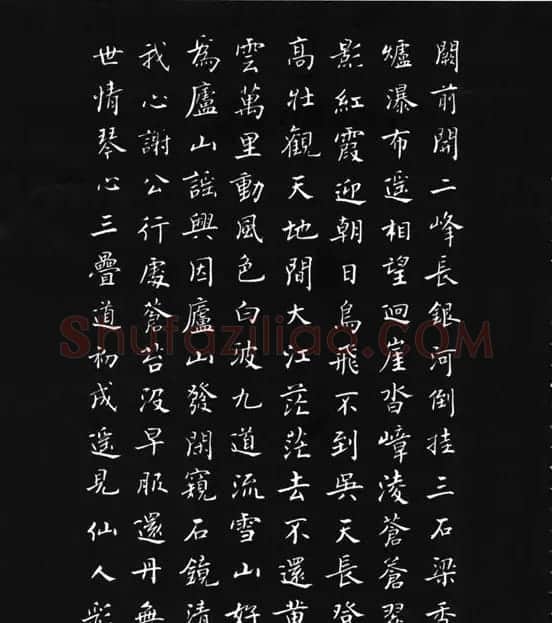 闕前開二峰長銀河倒挂三石梁香
爐瀑布遥相望迴崖沓嶂淩蒼蒼翠
影紅霞迎朝日鳥飛不到吳天長登
高壯觀天地間大江茫茫去不還黄
雲萬里動風色白波九道流雪山好
為廬山謡興因廬山發閑窺石鏡清
我心謝公行處蒼苔没早服還丹無
世情琴心三疊道初成遥見仙人彩
Shufaziliao.COM